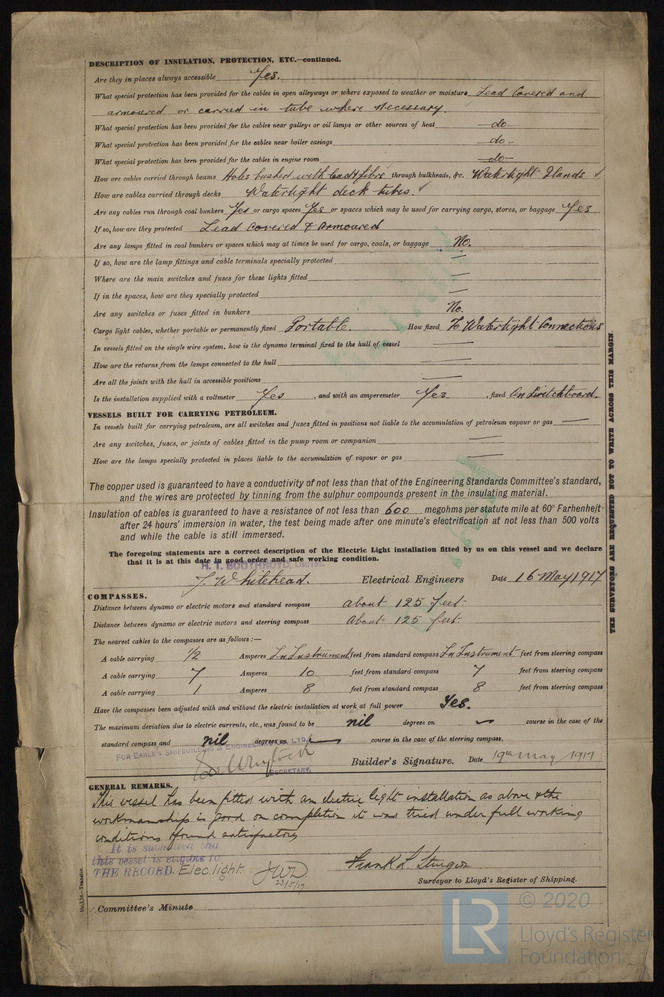 DESCRIPTION OF INSULATION, PROTECTION, ETC.—continued.
Are they in places always accessible Yes.
What special protection has been provided for the cables in open alleyways or where exposed to weather or moisture Lead Covered and
armoured or carried in tube where necessary.
What special protection has been provided for the cables near galleys or oil lamps or other sources of heat —do—
What special protection has been provided for the cables near boiler casings —do—
What special protection has been provided for the cables in engine room —do—
How are cables carried through beams Holes bushed with lead & fibre through bulkheads, &c. Watertight Glands ✓
How are cables carried through decks Watertight deck tubes. ✓
Are any cables run through coal bunkers Yes or cargo spaces Yes or spaces which may be used for carrying cargo, stores, or baggage Yes
If so, how are they protected Lead Covered & Armoured
Are any lamps fitted in coal bunkers or spaces which may at times be used for cargo, coals, or baggage No.
If so, how are the lamp fittings and cable terminals specially protected —
Where are the main switches and fuses for these lights fitted —
If in the spaces, how are they specially protected —
Are any switches or fuses fitted in bunkers No.
Cargo light cables, whether portable or permanently fixed Portable. How fixed To Watertight Connections
In vessels fitted on the single wire system, how is the dynamo terminal fixed to the hull of vessel —
How are the returns from the lamps connected to the hull —
Are all the joints with the hull in accessible positions —
Is the installation supplied with a voltmeter Yes, and with an amperemeter Yes, fixed On Switchboard.
VESSELS BUILT FOR CARRYING PETROLEUM.
In vessels built for carrying petroleum, are all switches and fuses fitted in positions not liable to the accumulation of petroleum vapour or gas —
Are any switches, fuses, or joints of cables fitted in the pump room or companion —
How are the lamps specially protected in places liable to the accumulation of vapour or gas —
The copper used is guaranteed to have a conductivity of not less than that of the Engineering Standards Committee's standard,
and the wires are protected by tinning from the sulphur compounds present in the insulating material.
Insulation of cables is guaranteed to have a resistance of not less than 600 megohms per statute mile at 60° Farhenheit
after 24 hours' immersion in water, the test being made after one minute's electrification at not less than 500 volts
and while the cable is still immersed.
The foregoing statements are a correct description of the Electric Light installation fitted by us on this vessel and we declare
that it is at this date in good order and safe working condition.
H. T. BOOTHROYD, LIMITED
J Whitehead. Electrical Engineers Date 16 May 1917
COMPASSES.
Distance between dynamo or electric motors and standard compass about 125 feet.
Distance between dynamo or electric motors and steering compass about 125 feet.
The nearest cables to the compasses are as follows:—
A cable carrying 1/2 Amperes In Instrument feet from standard compass In Instrument feet from steering compass
A cable carrying 7 Amperes 10 feet from standard compass 7 feet from steering compass
A cable carrying 1 Amperes 8 feet from standard compass 8 feet from steering compass
Have the compasses been adjusted with and without the electric installation at work at full power Yes.
The maximum deviation due to electric currents, etc., was found to be nil degrees on course in the case of the
standard compass and nil degrees on course in the case of the steering compass.
FOR EARLE'S SHIPBUILDING & ENGINEERING CO. LTD.
SECRETARY.
Builder's Signature. Date 19th May 1917
GENERAL REMARKS.
This vessel has been fitted with an electric light installation as above & the
workmanship is good on completion it was tried under full working
conditions & found satisfactory
It is submitted that
this vessel is eligible to
THE RECORD. Elec. light.
JWD
23/5/17
Frank L Sturgeon
Surveyor to Lloyd's Register of Shipping.
Committee's Minute
THE SURVEYORS ARE REQUESTED NOT TO WRITE ACROSS THIS MARGIN.
© 2020
LR
Lloyd's Register
Foundation